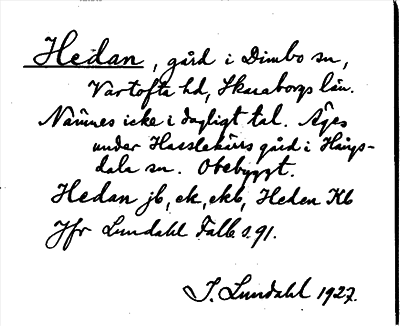 Hedan, gård i Dimbo sn,
Vartofta hd, Skaraborgs län.
Nämnes icke i dagligt tal. Äges
under Hasslekärrs gård i Hångs-
dala sn. Obebyggt.
Hedan jb, ek, ekb, Heden Kb
Jfr Lundahl Falb s. 91.
I. Lundahl 1927.